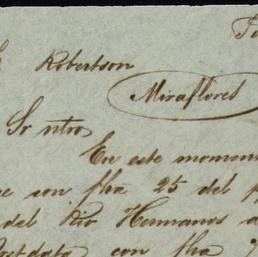 Robertson
Miraflores
Sr ntro
En este momen
con fha 25 del p
del Rio Hermanos a
Postdata con fha 7